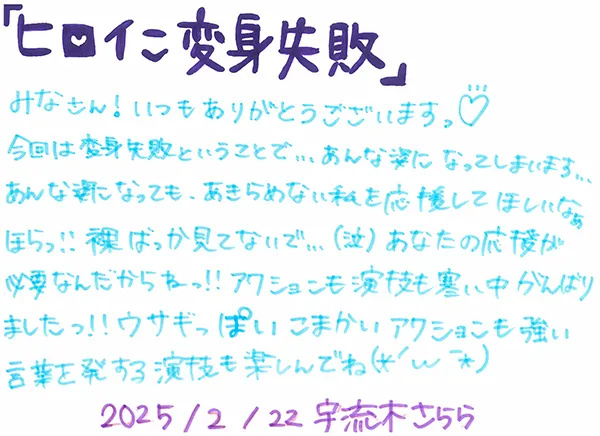 『ヒロイン変身失敗』
みなさん！いつもありがとうございますっ♡
今回は変身失敗ということで…あんな姿になってしまいます…
あんな姿になっても、あきらめない私を応援してほしいなぁ
ほらっ!!裸ばっか見てないで…(泣)あなたの応援が
必要なんだからねっ!!アクションも演技も寒い中がんばり
ましたっ!!ウサギっぽいこまかいアクションも強い
言葉を発する演技も楽しんでね(*´ω｀*)
2025/2/22 宇流木さらら